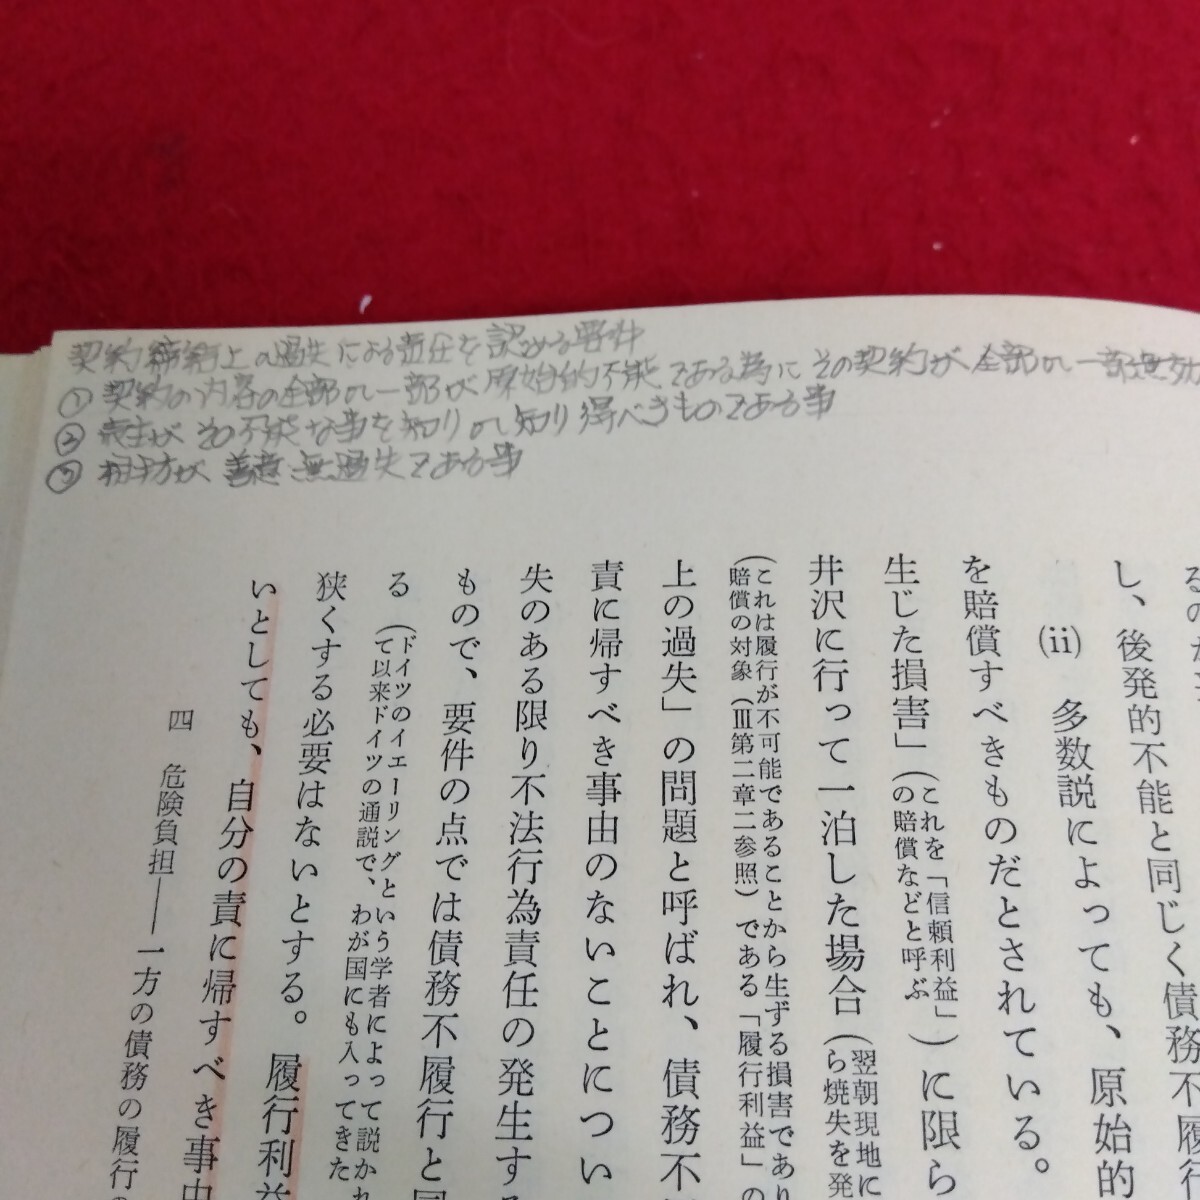 契約締結上の過失による責任を認める要件
① 契約の内容の全部or一部が原始的不能である為にその契約が全部or一部無効
② 売主がその不能な事を知りor知り得べきものである事
③ 相手方が善意無過失である事
し、後発的不能と同じく債務不履行
(ii) 多数説によっても、原始的
を賠償すべきものだとされている。
生じた損害」(これを「信頼利益」の賠償などと呼ぶ)に限ら
井沢に行って一泊した場合(翌朝現地に
ら焼失を発
(これは履行が不可能であることから生ずる損害であり
賠償の対象(Ⅲ第二章二参照)である「履行利益」の
上の過失」の問題と呼ばれ、債務不
責に帰すべき事由のないことについ
失のある限り不法行為責任の発生す
もので、要件の点では債務不履行と
る(ドイツのイエーリングという学者によって説かれ
て以来ドイツの通説で、わが国にも入ってきた
狭くする必要はないとする。履行利
いとしても、自分の責に帰すべき事由
四 危険負担――一方の債務の履行の